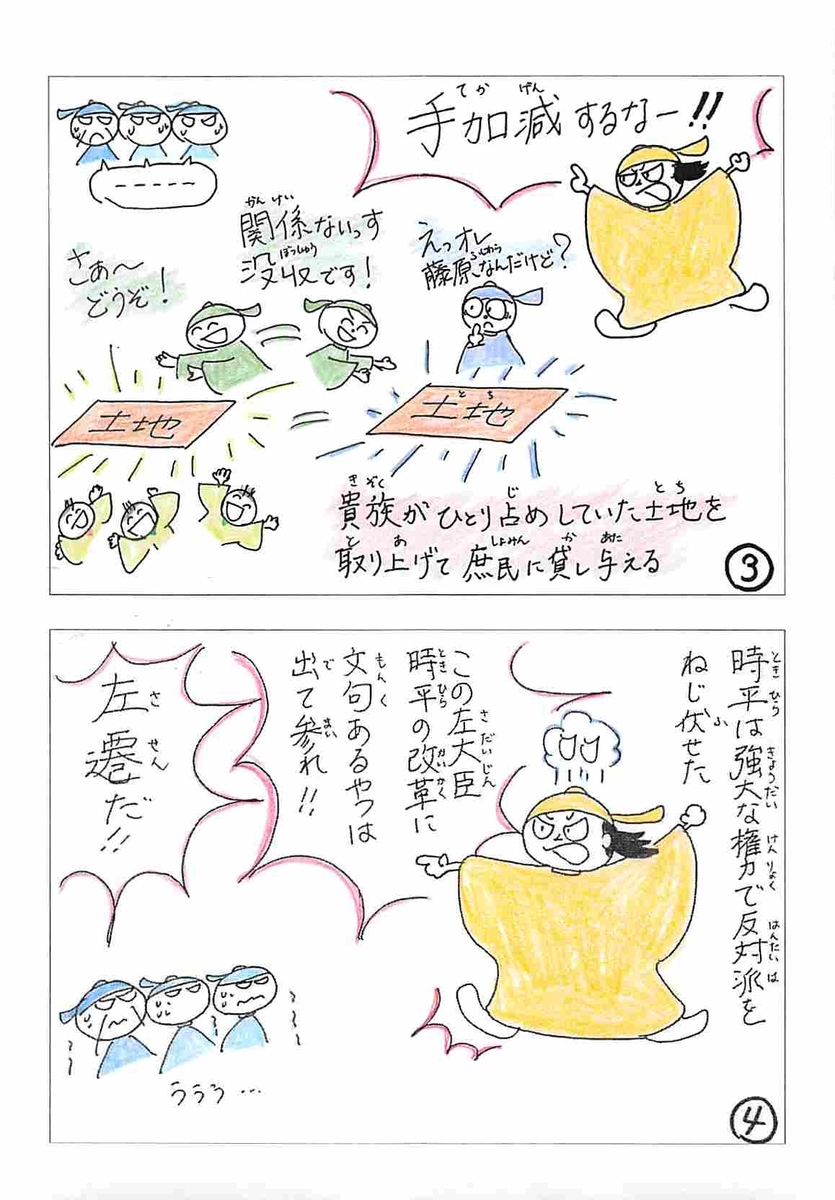 手加減するなー!!
てかげん
------
関係ないっす
かんけい
没収です!
ぼっしゅう
えっオレ
藤原なんだけど?
ふじわら
さぁ〜
どうぞ!
土地
土地
とち
貴族がひとり占めしていた土地を
きぞく じ とち
取り上げて庶民に貸し与える
と あ しょみん か あた
③
時平は強大な権力で反対派を
ときひら きょうだい けんりょく はんたいは
ねじ伏せた
ふ
この左大臣
さだいじん
時平の改革に
ときひら かいかく
文句あるやつは
もんく
出て参れ!!
で まい
左遷だ!!
させん
ううう…
④